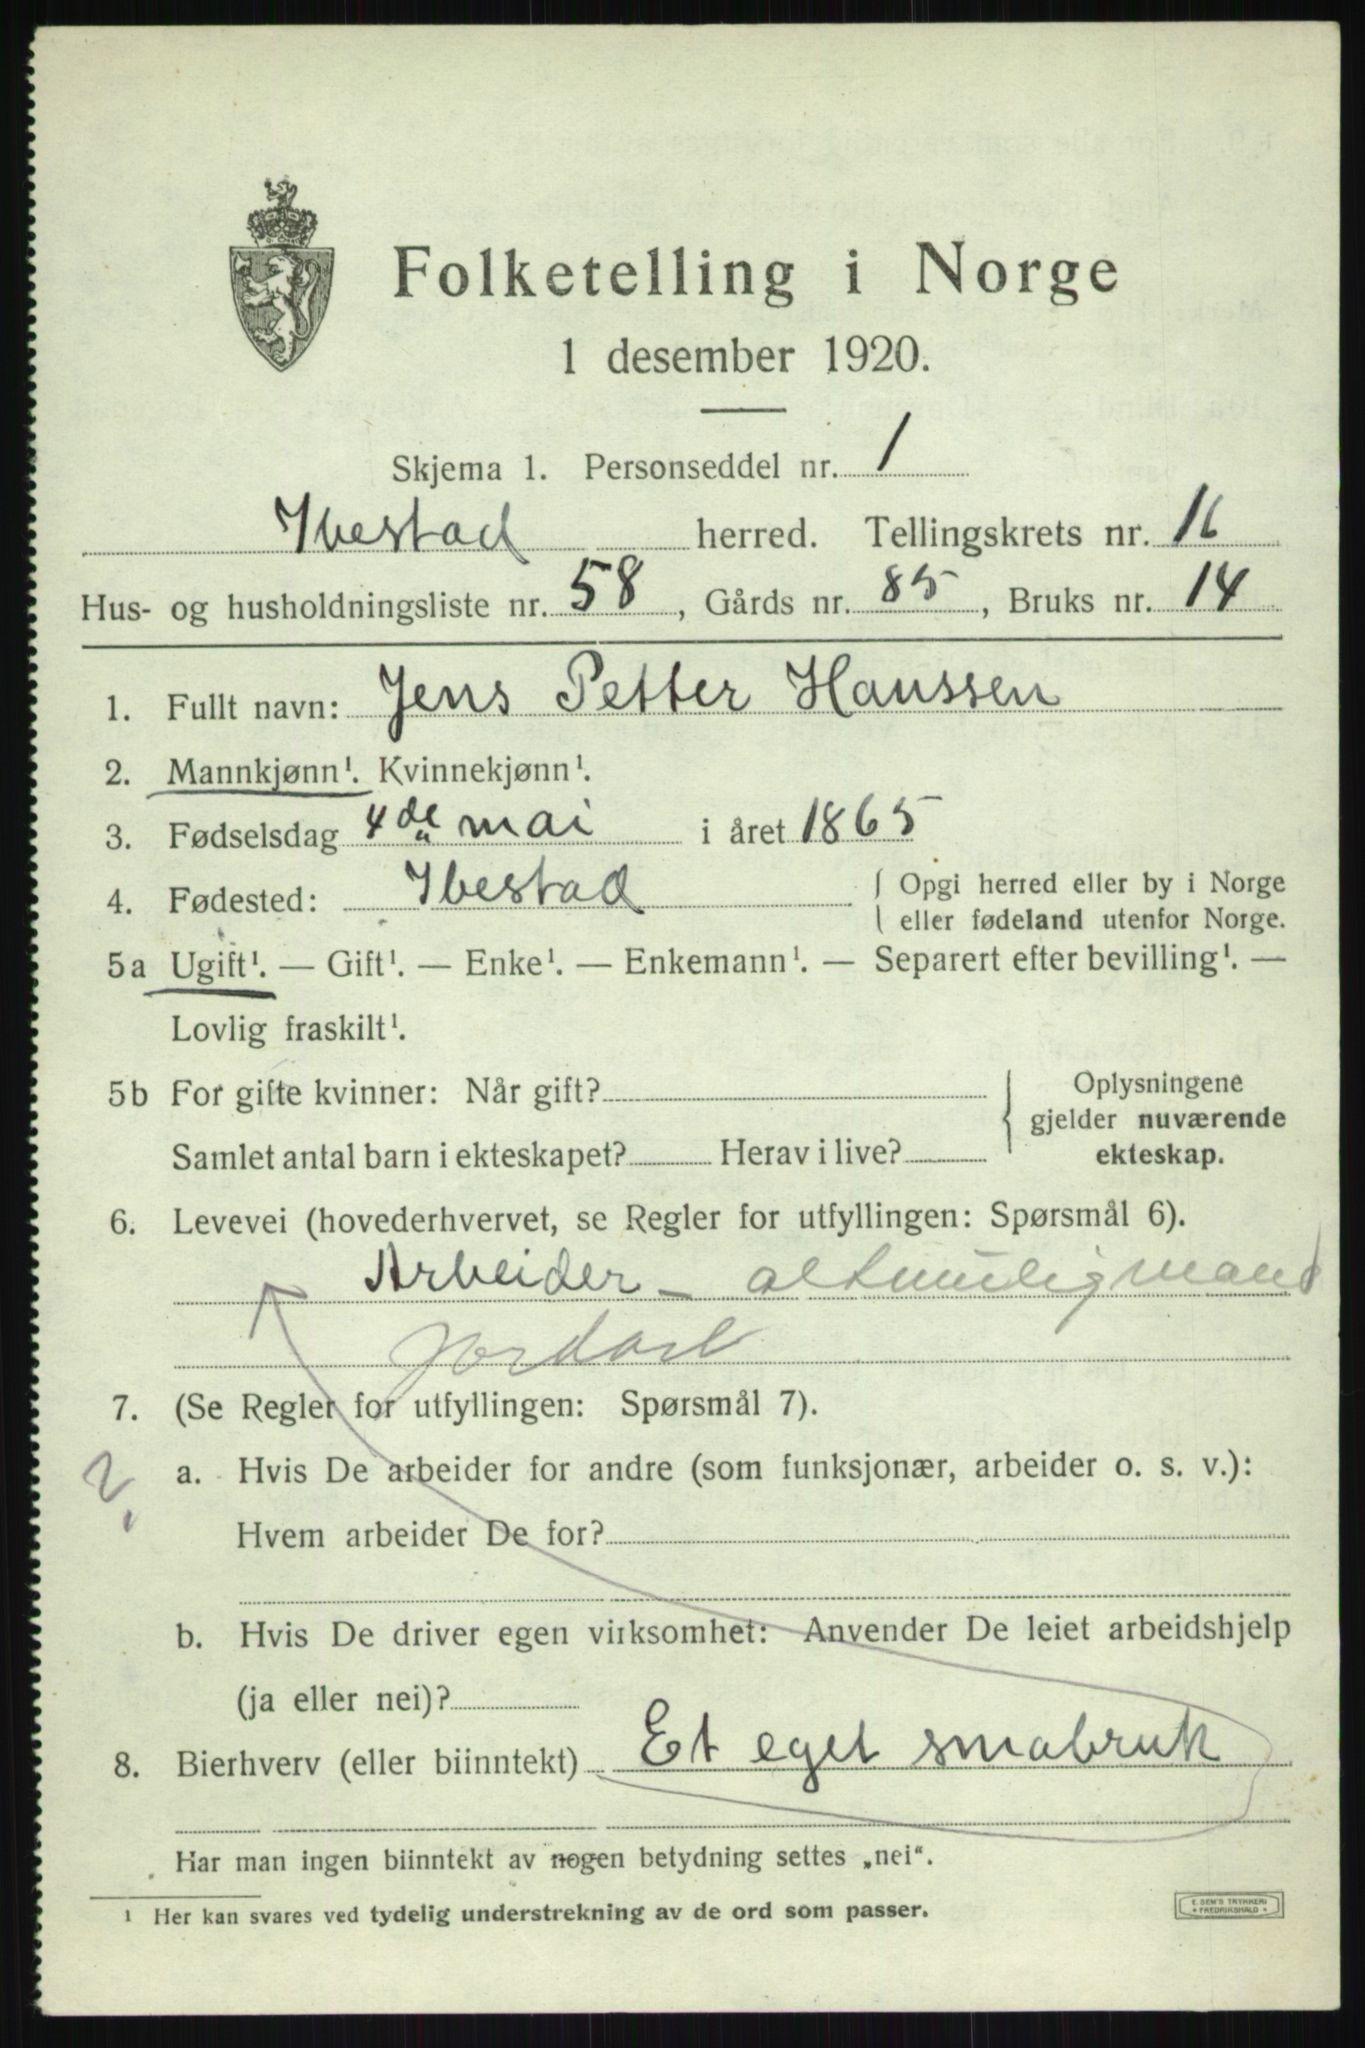 Folketelling i Norge
1 desember 1920.
Skjema 1. Personseddel nr. 1
Ibestad herred. Tellingskrets nr. 16
Hus- og husholdningsliste nr. 58, Gårds nr. 85, Bruks nr. 14
1. Fullt navn: Jens Petter Hanssen
2. Mannkjønn¹. Kvinnekjønn¹.
3. Fødselsdag 4de mai i året 1865
4. Fødested: Ibestad { Opgi herred eller by i Norge
eller fødeland utenfor Norge.
5a Ugift¹. — Gift¹. — Enke¹. — Enkemann¹. — Separert efter bevilling¹. —
Lovlig fraskilt¹.
5b For gifte kvinner: Når gift?
Samlet antal barn i ekteskapet? Herav i live?
Oplysningene
gjelder nuværende
ekteskap.
6. Levevei (hovederhvervet, se Regler for utfyllingen: Spørsmål 6).
Arbeider -
7. (Se Regler for utfyllingen: Spørsmål 7).
a. Hvis De arbeider for andre (som funksjonær, arbeider o. s. v.):
Hvem arbeider De for?
b. Hvis De driver egen virksomhet: Anvender De leiet arbeidshjelp
(ja eller nei)?
8. Bierhverv (eller biinntekt) Et eget smabruk
Har man ingen biinntekt av nogen betydning settes „nei“.
¹ Her kan svares ved tydelig understrekning av de ord som passer.
E. SEM'S TRYKKERI
FREDRIKSHALD